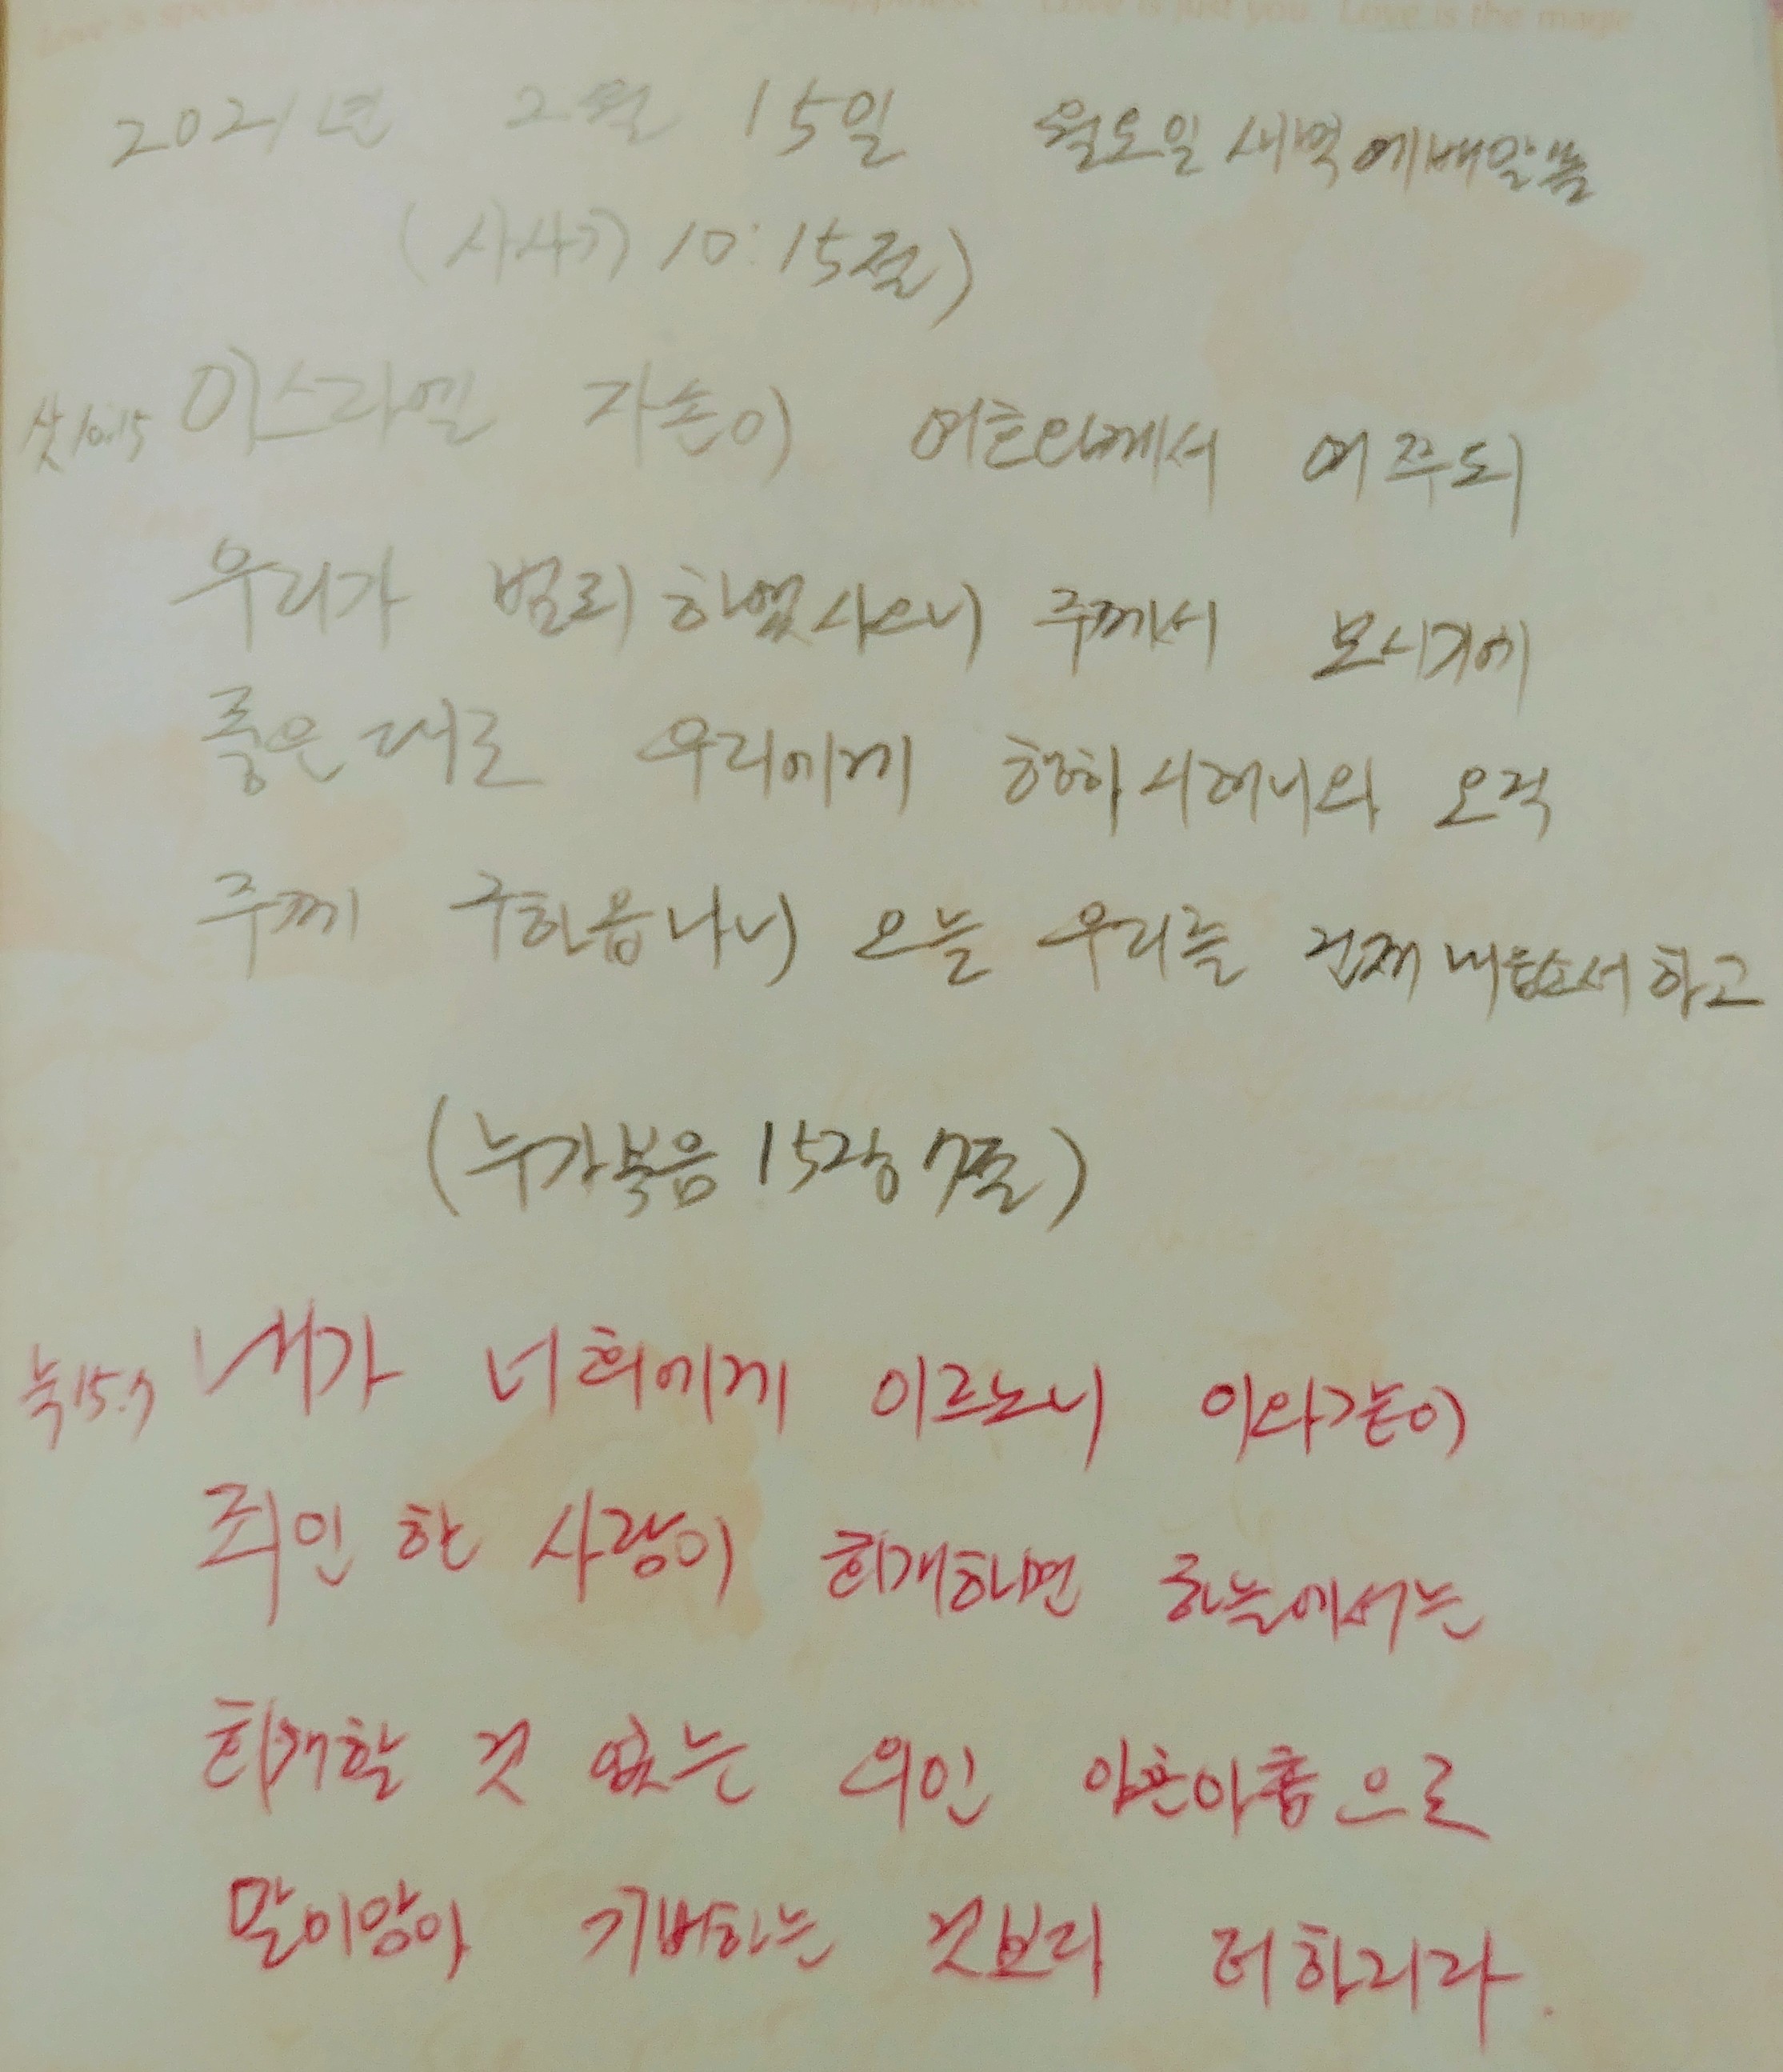 Love is just you Love is the magic
2021년 2월 15일 월요일 새벽예배말씀
(사사기 10:15절)
삿10:15 이스라엘 자손이 여호와께서 여쭈되
우리가 범죄하였사오니 주께서 보시기에
좋은대로 우리에게 행하시려니와 오직
주께 구하옵나니 오늘 우리를 건져내옵소서 하고
(누가복음 15장 7절)
눅15:7 내가 너희에게 이르노니 이와같이
죄인 한 사람이 회개하면 하늘에서는
회개할 것 없는 의인 아흔아홉으로
말미암아 기뻐하는 것보다 더하리라.